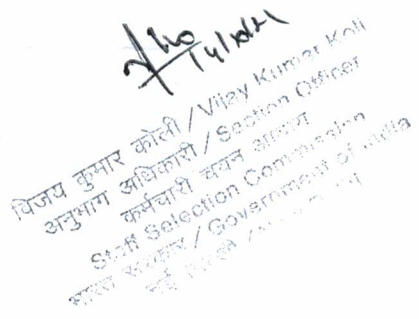 विजय कुमार कोली / Vijay Kumar Koli
अनुभाग अधिकारी / Section Officer
कर्मचारी चयन आयोग
Staff Selection Commission
भारत सरकार / Government of India
नई दिल्ली /